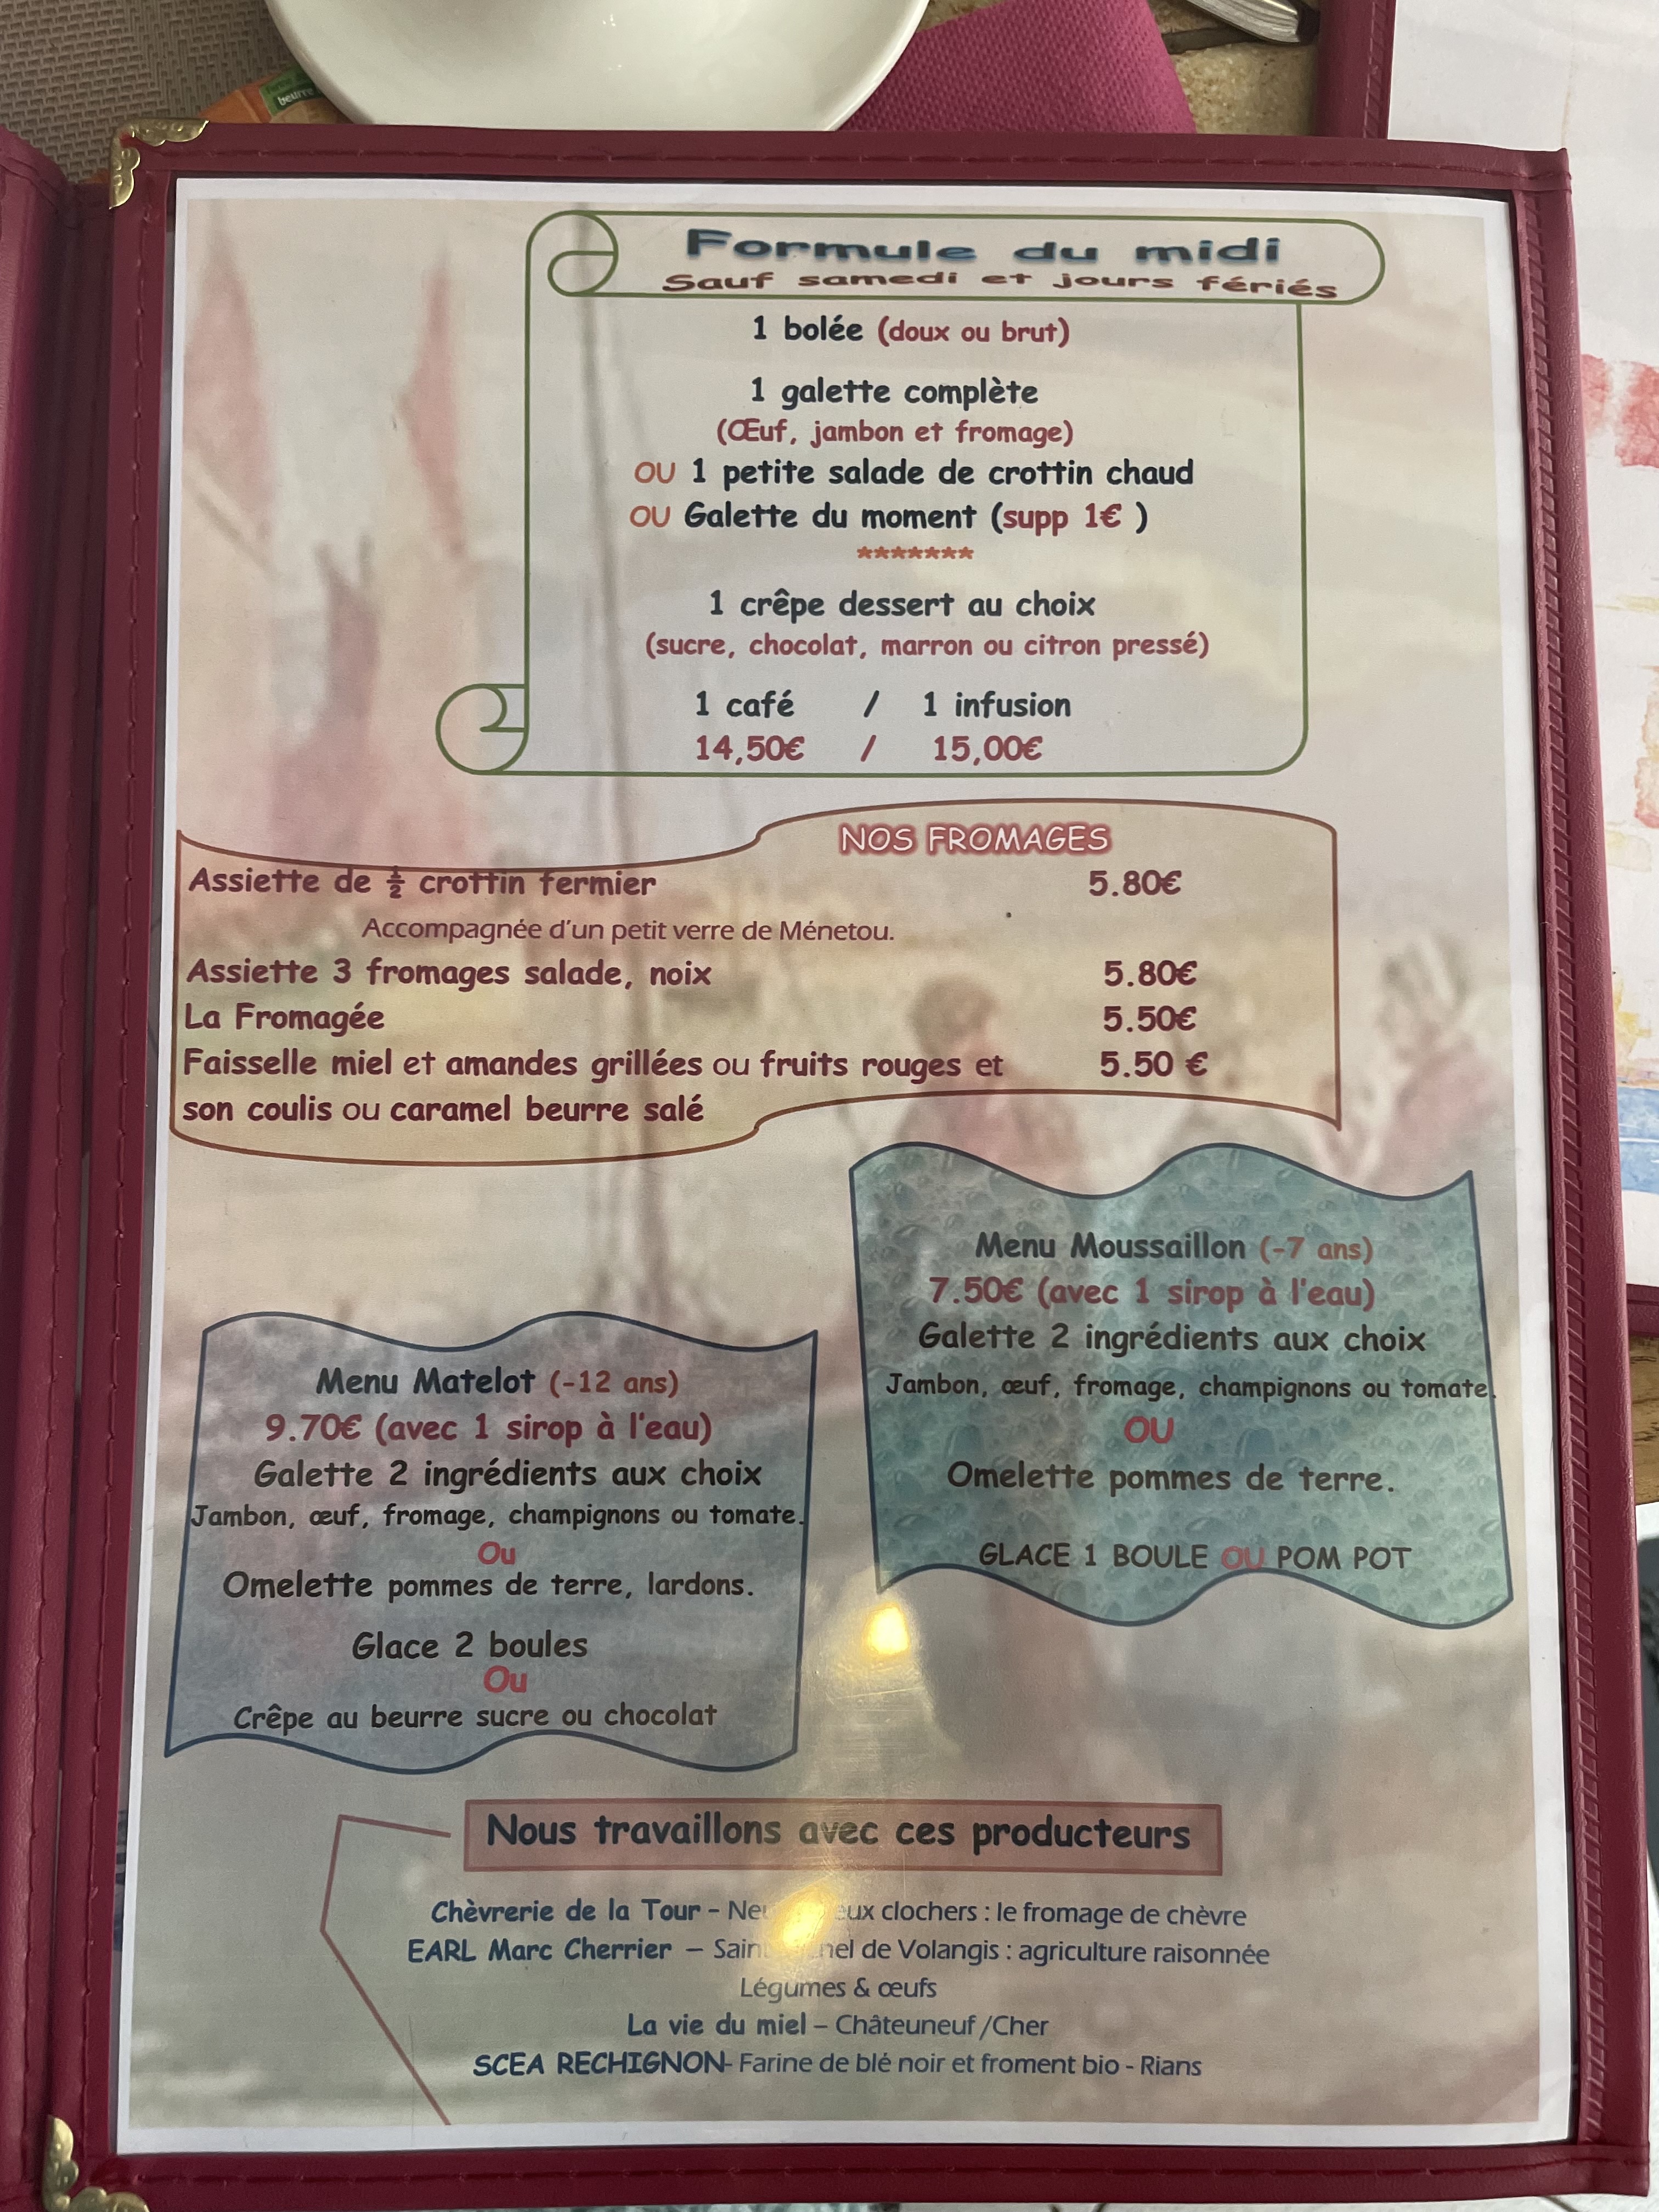 beurre
Formule du midi
Sauf samedi et jours fériés
1 bolée (doux ou brut)
1 galette complète
(Œuf, jambon et fromage)
OU 1 petite salade de crottin chaud
OU Galette du moment (supp 1€ )
*******
1 crêpe dessert au choix
(sucre, chocolat, marron ou citron pressé)
1 café / 1 infusion
14,50€ / 15,00€
NOS FROMAGES
Assiette de ½ crottin fermier 5.80€
Accompagnée d'un petit verre de Ménetou.
Assiette 3 fromages salade, noix 5.80€
La Fromagée 5.50€
Faisselle miel et amandes grillées ou fruits rouges et 5.50 €
son coulis ou caramel beurre salé
Menu Moussaillon (-7 ans)
7.50€ (avec 1 sirop à l'eau)
Galette 2 ingrédients aux choix
Jambon, œuf, fromage, champignons ou tomate.
OU
Omelette pommes de terre.
GLACE 1 BOULE OU POM POT
Menu Matelot (-12 ans)
9.70€ (avec 1 sirop à l'eau)
Galette 2 ingrédients aux choix
Jambon, œuf, fromage, champignons ou tomate.
Ou
Omelette pommes de terre, lardons.
Glace 2 boules
Ou
Crêpe au beurre sucre ou chocolat
Nous travaillons avec ces producteurs
Chèvrerie de la Tour - clochers : le fromage de chèvre
EARL Marc Cherrier – de Volangis : agriculture raisonnée
Légumes & œufs
La vie du miel – Châteuneuf /Cher
SCEA RECHIGNON- Farine de blé noir et froment bio - Rians